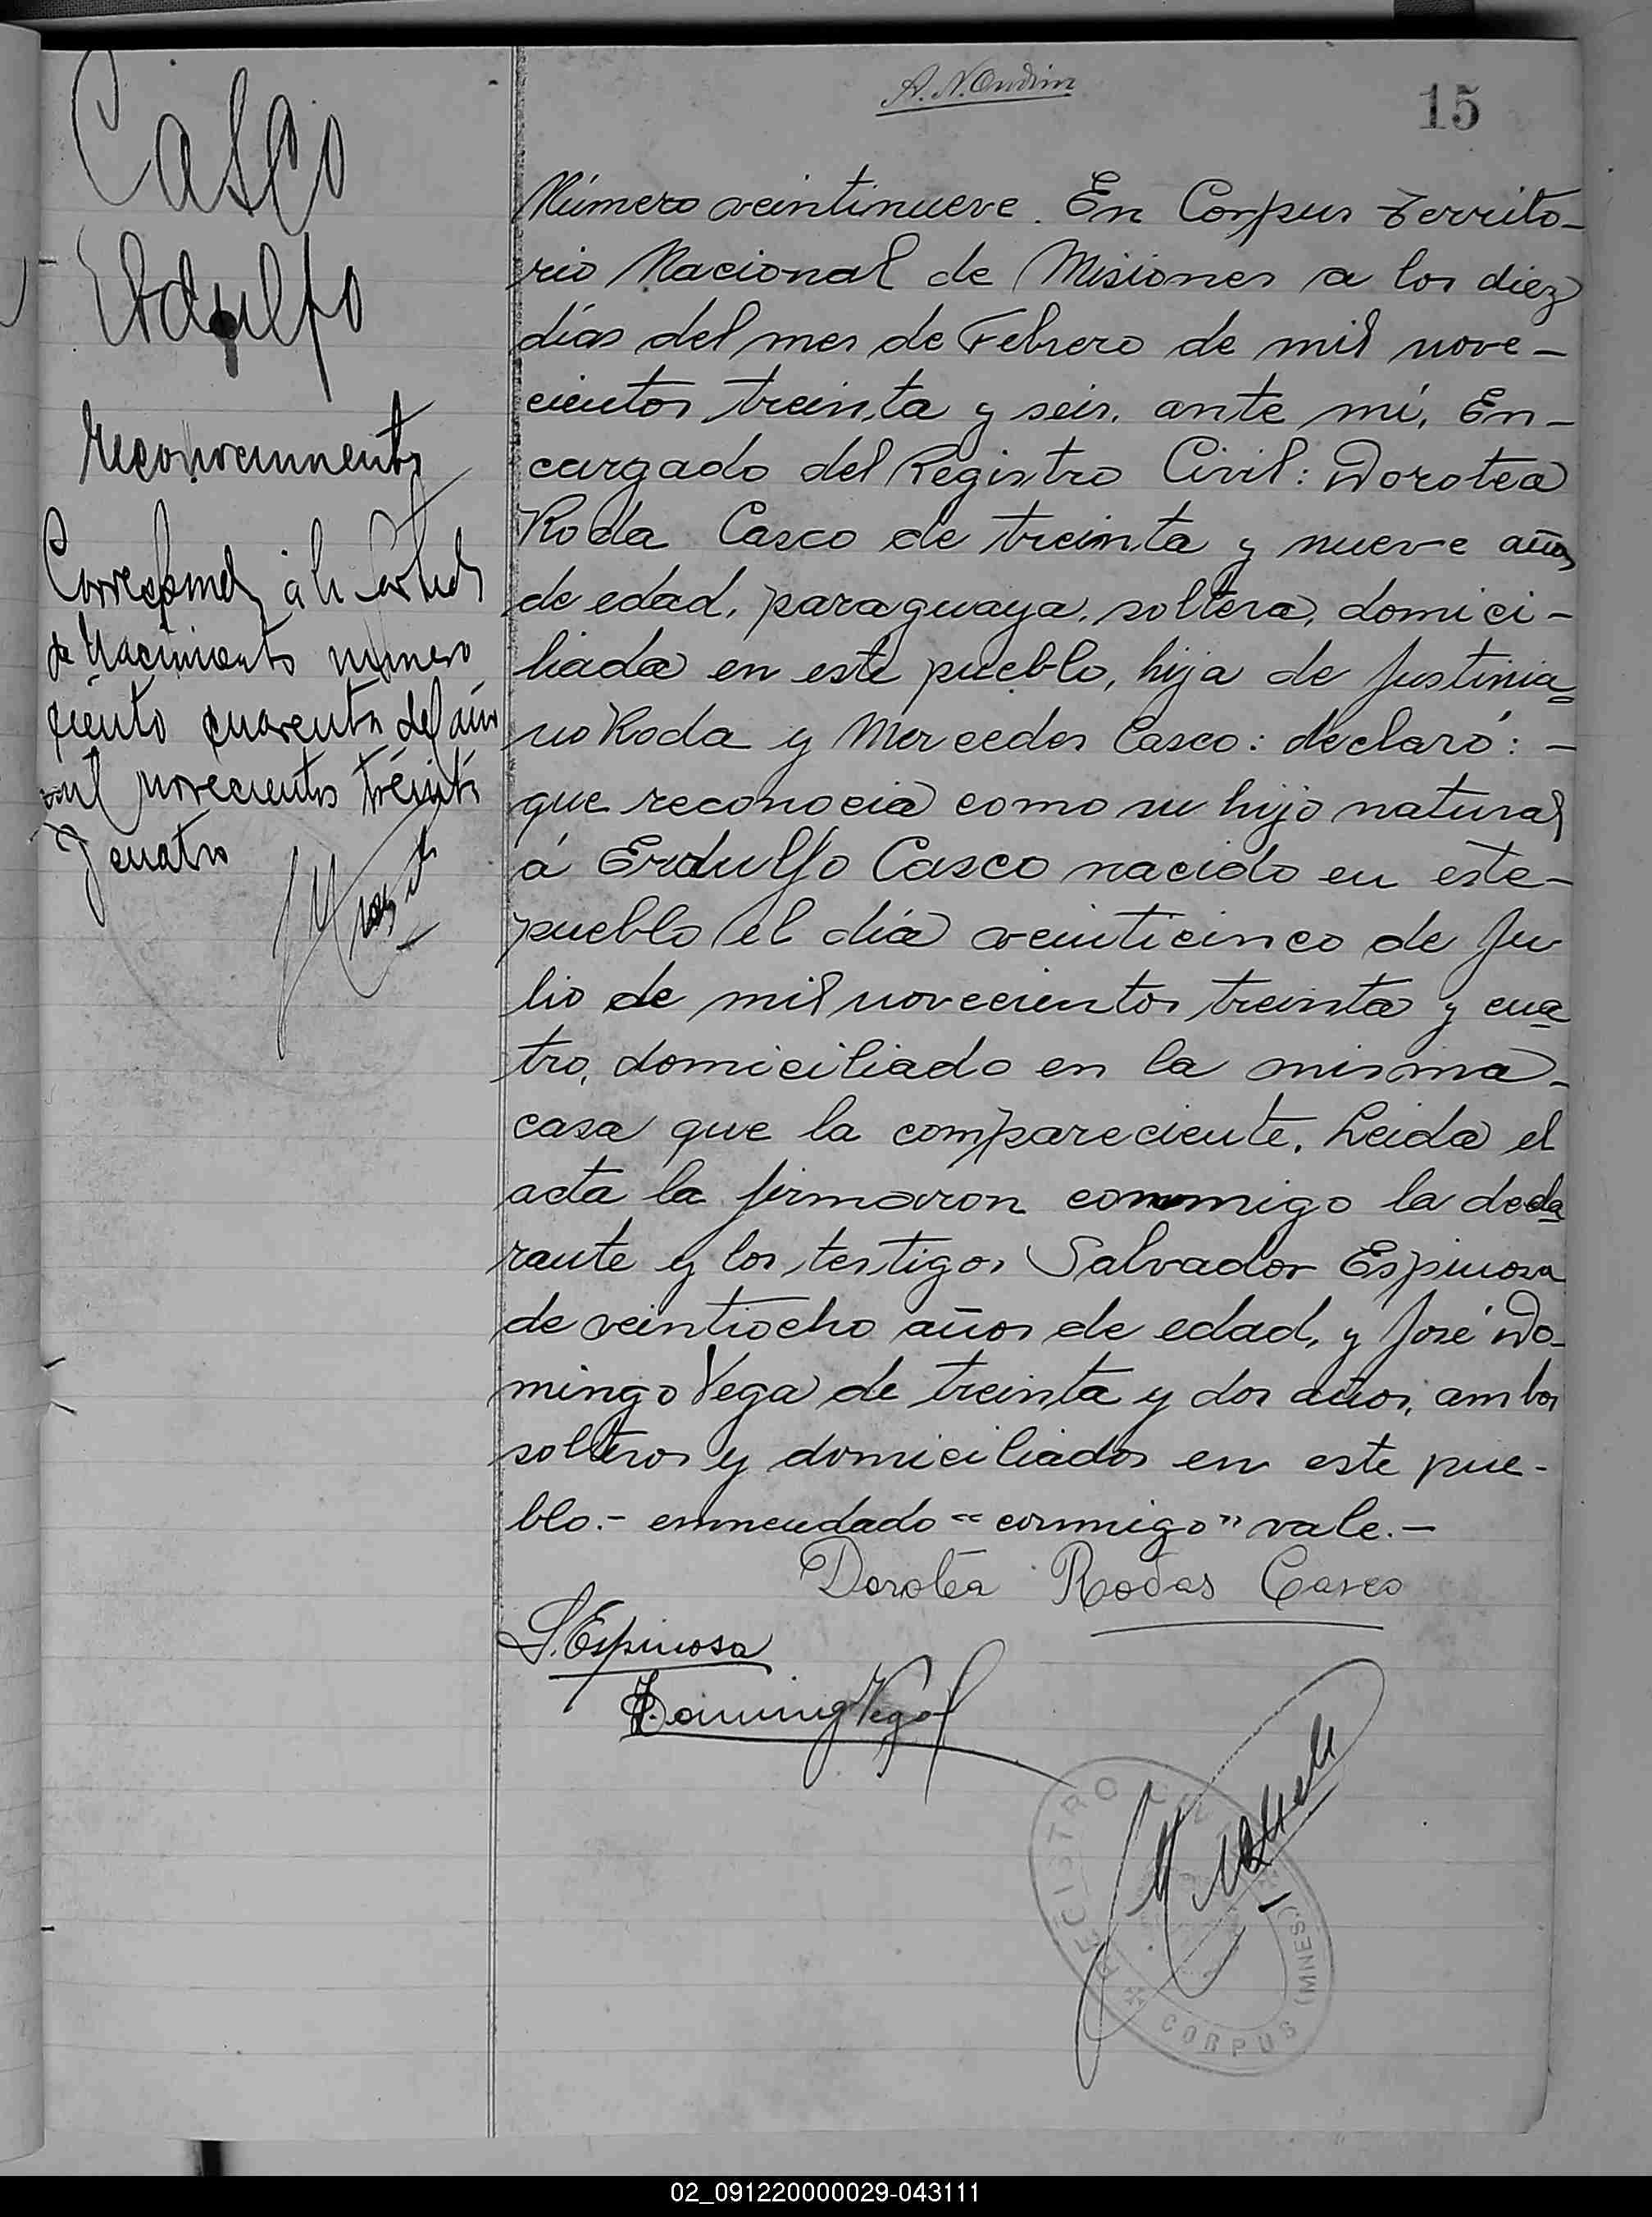 15
Casco
Erdulfo
reconocimiento
Corresponde á la
de Nacimiento número
ciento cuarenta del año
mil novecientos treinta
y cuatro
Número veintinueve. En Corpus Territo-
rio Nacional de Misiones a los diez
días del mes de Febrero de mil nove-
cientos treinta y seis, ante mí, En-
cargado del Registro Civil: Dorotea
Roda Casco de treinta y nueve años
de edad, paraguaya, soltera, domici-
liada en este pueblo, hija de Justinia
no Roda y Mercedes Casco: declaró: -
que reconocia como su hijo natural
á Erdulfo Casco nacido en este-
pueblo el día veinticinco de Ju
lio de mil novecientos treinta y cua
tro, domiciliado en la misma-
casa que la compareciente. Leida el
acta la firmaron conmigo la decla
rante y los testigos Salvador Espinosa
de veintiocho años de edad, y José Do-
mingo Vega de treinta y dos años, ambos
solteros y domiciliados en este pue-
blo.- enmendado "conmigo" vale.-
Dorotea Rodas Casco
S. Espinosa
J. Domingo Vega
REGISTRO
CORPUS (MNES.)
02_091220000029-043111